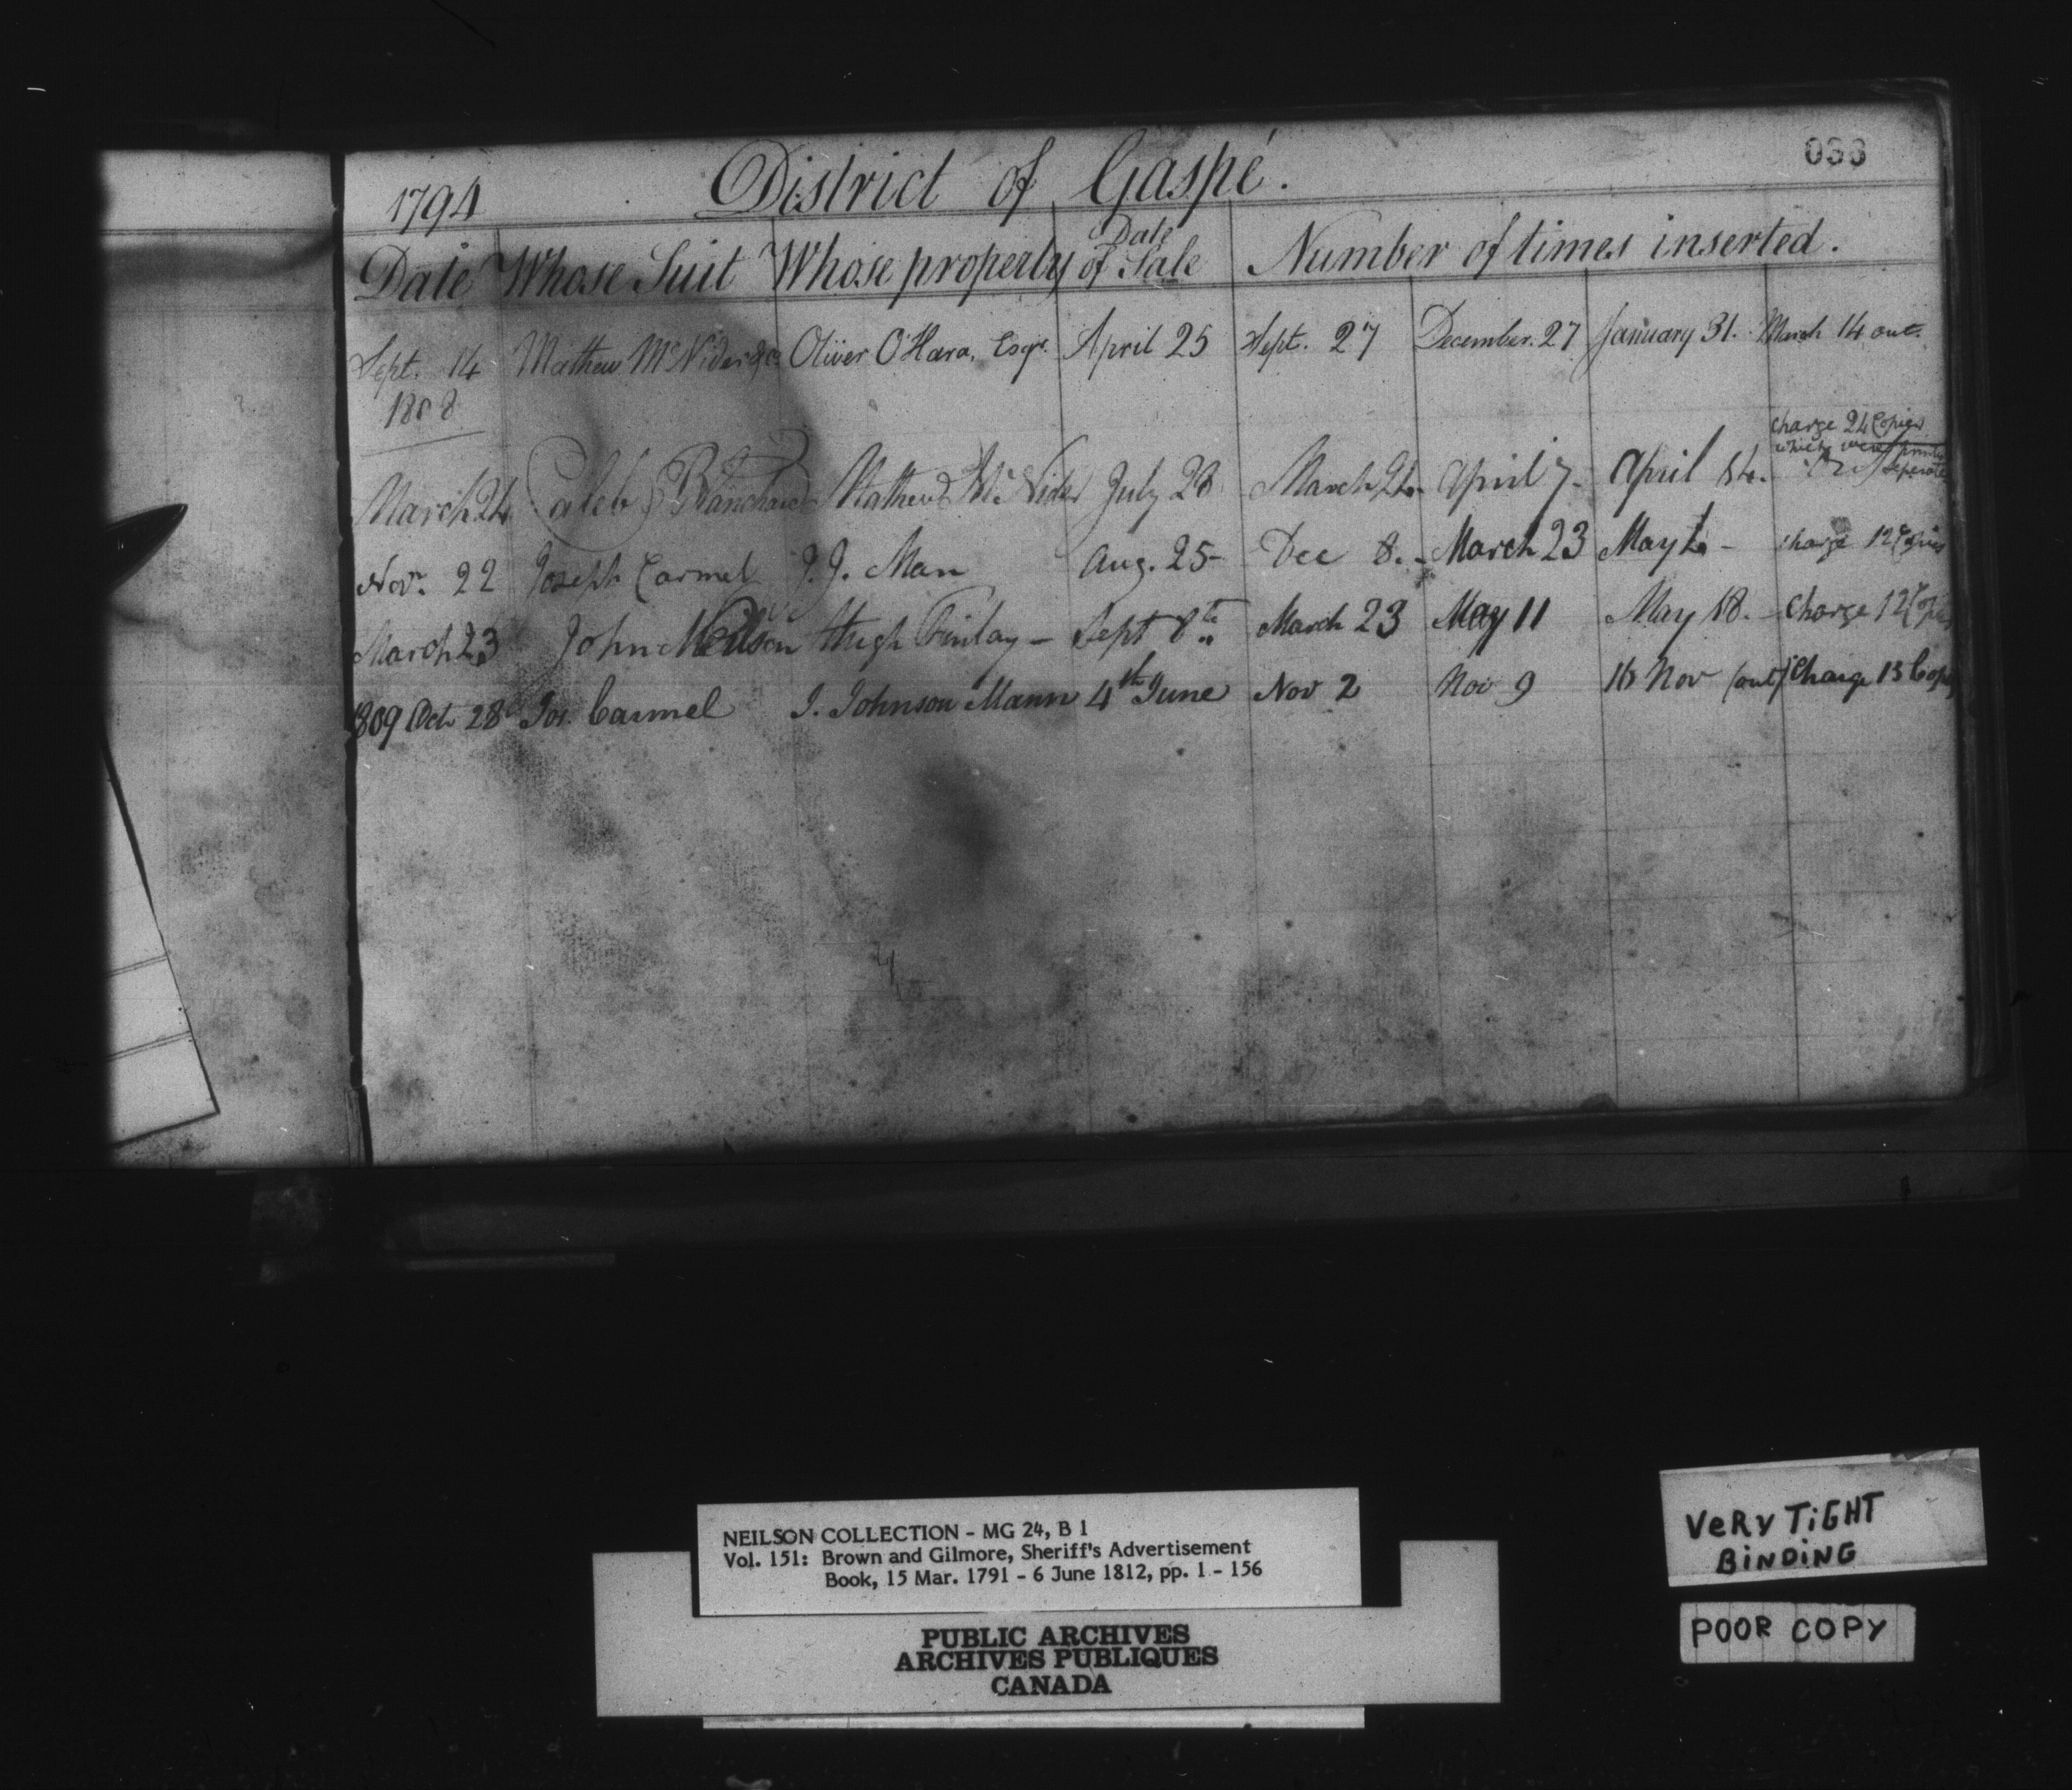 033
1794 District of Gaspé.
Date Whose Suit Whose property Date of Sale Number of times inserted.
Sept. 14 Mathew McNider &c. Oliver O'Hara, Esqr. April 25 Sept. 27 December. 27 January 31. March 14 out.
1808
charge 24 Copies
which were printed
seperate
March 24 Caleb Blanchard Mathew McNider July 28 March 24. April 7. April 14.
Novr. 22 Joseph Carmel J. J. Man Aug. 25 - Dec 8. - March 23 May 4 - charge 12 Copies
March 23 John Neilson Hugh Finlay - Sept 8th March 23 May 11 May 18. - Charge 12 Copies
1809 Oct 28 Jos. Carmel J. Johnson Mann 4th June Nov 2 Nov 9 16 Nov (out) Charge 13 Copies
NEILSON COLLECTION - MG 24, B 1
Vol. 151: Brown and Gilmore, Sheriff's Advertisement
Book, 15 Mar. 1791 - 6 June 1812, pp. 1 - 156
PUBLIC ARCHIVES
ARCHIVES PUBLIQUES
CANADA
VERY TiGHT
BiNDiNG
POOR COPY